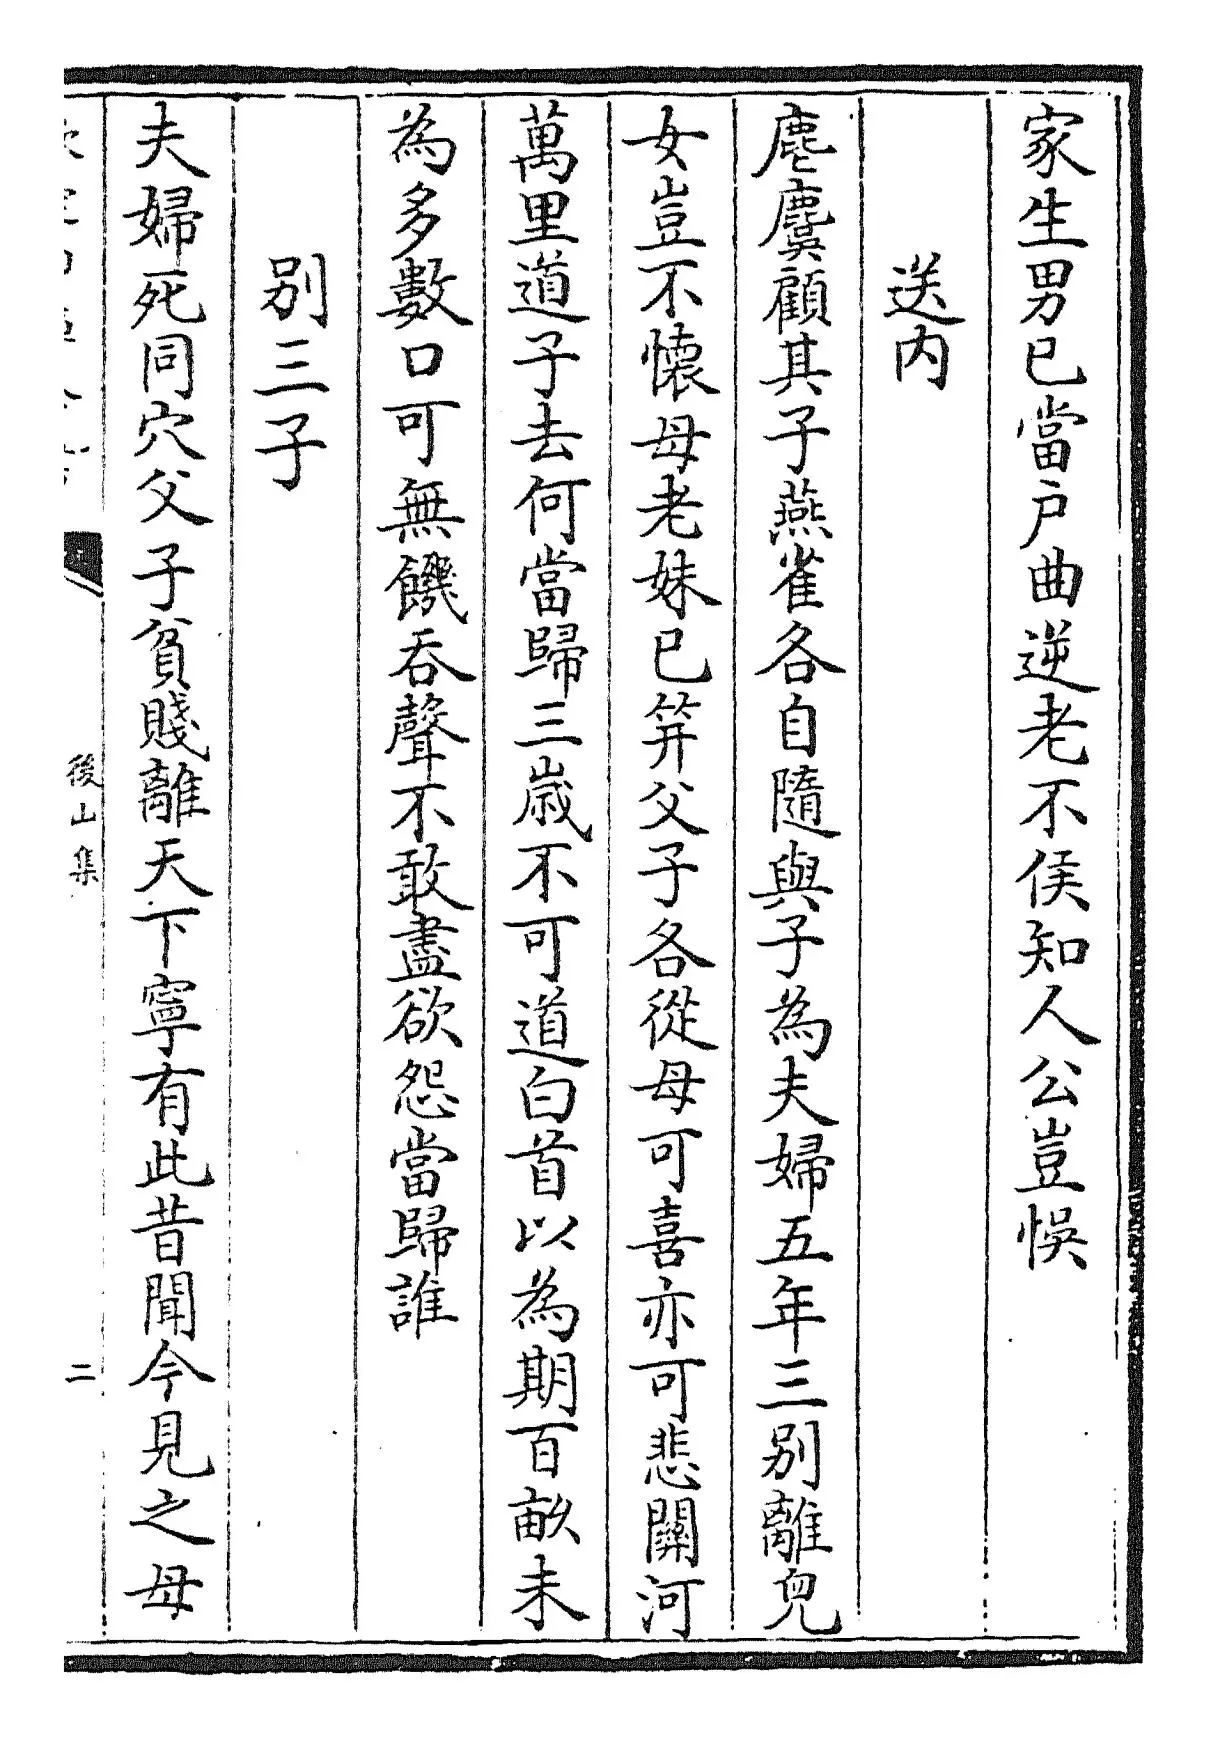 家生男已當户曲逆老不侯知人公豈悞
送内
麀麌顧其子燕雀各自隨與子為夫婦五年三别離兒
女豈不懷母老妹已笄父子各從母可喜亦可悲關河
萬里道子去何當歸三歳不可道白首以為期百畝未
為多數口可無饑吞聲不敢盡欲怨當歸誰
别三子
夫婦死同穴父子貧賤離天下寧有此昔聞今見之母
後山集
二